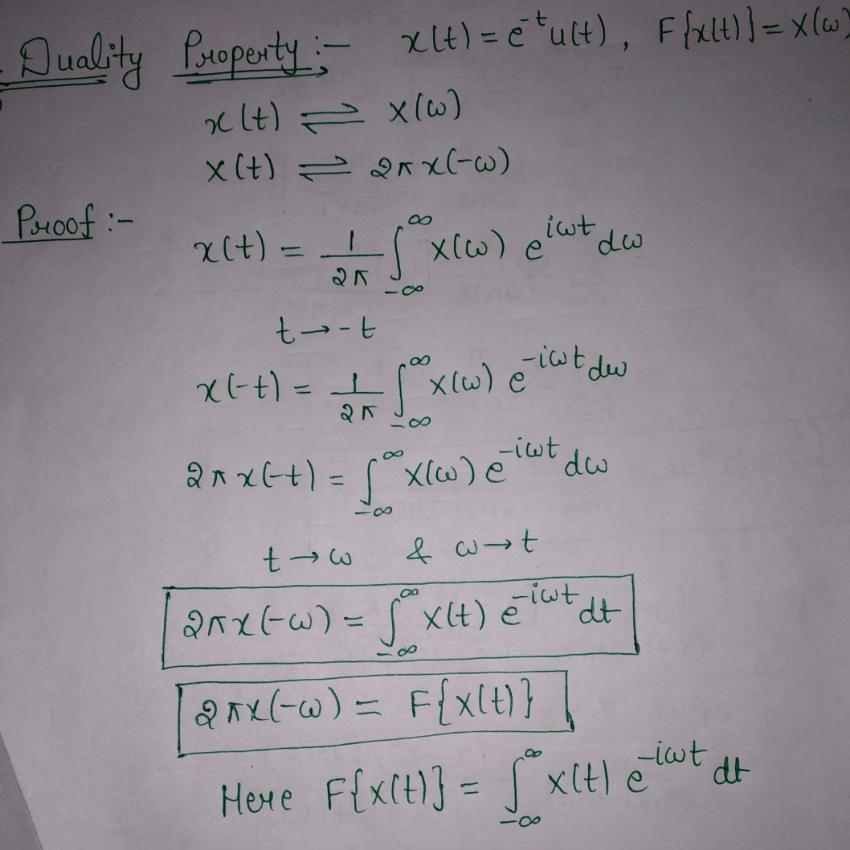 Duality Property :- x(t) = e^{-t}u(t), F{x(t)} = X(ω)
x(t) ⇌ X(ω)
X(t) ⇌ 2π x(-ω)
Proof :-
x(t) = 1/2π ∫_{-∞}^{∞} X(ω) e^{iωt} dω
t → -t
x(-t) = 1/2π ∫_{-∞}^{∞} X(ω) e^{-iωt} dω
2π x(-t) = ∫_{-∞}^{∞} X(ω) e^{-iωt} dω
t → ω & ω → t
2π x(-ω) = ∫_{-∞}^{∞} X(t) e^{-iωt} dt
2π x(-ω) = F{X(t)}
Here F{X(t)} = ∫_{-∞}^{∞} X(t) e^{-iωt} dt